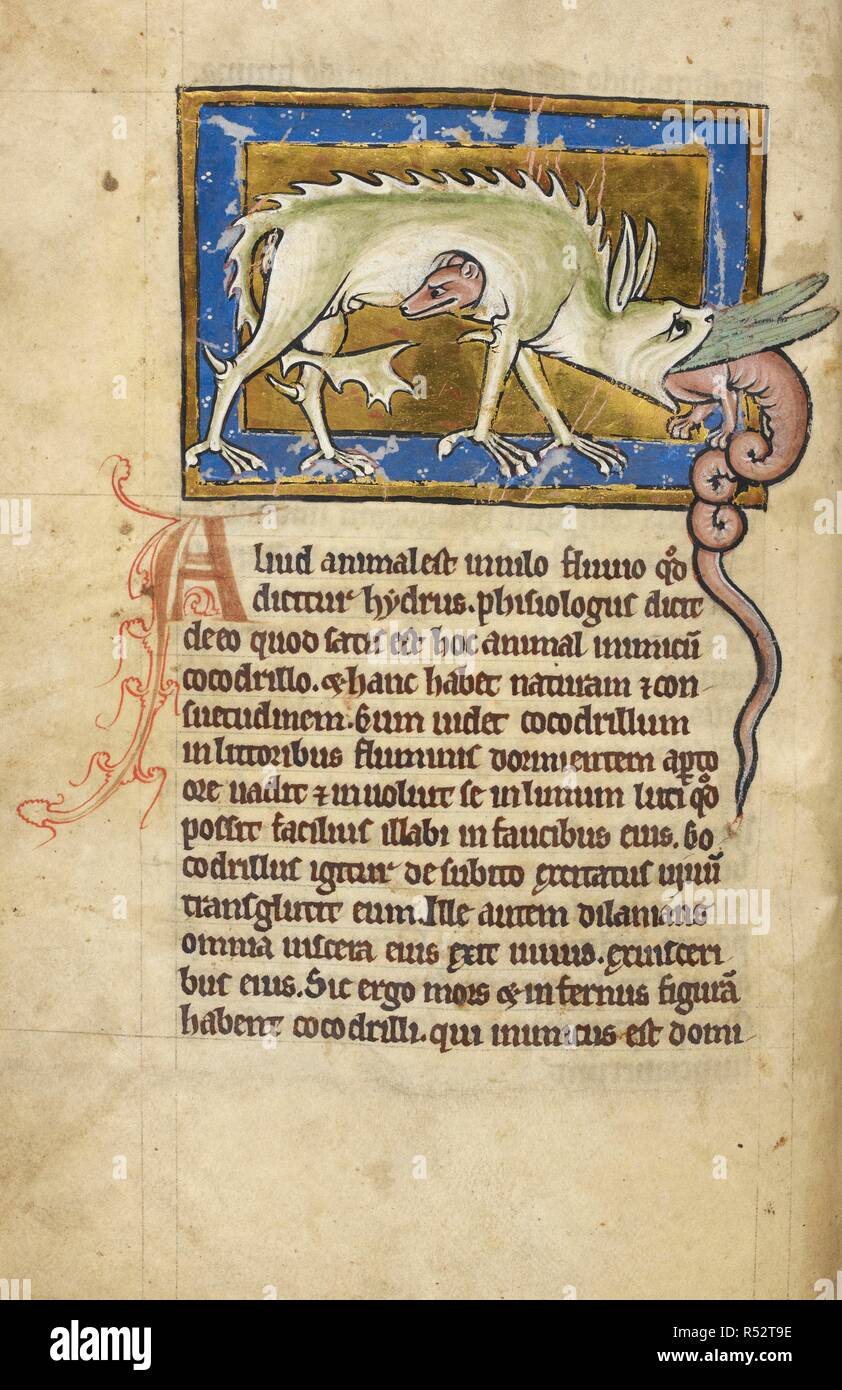 Aliud animal est in nilo fluuio qͦd
dicitur hydrus. phisiologus dicit
de eo quod satis est hoc animal inimicū
cocodrillo. & hanc habet naturam ⁊ con-
suetudinem. Cum uidet cocodrillum
in littoribus fluminis dormientem aꝑto
ore uadit ⁊ inuoluit se in limum luti qͦd
possit facilius illabi in faucibus eius. Co
codrillus igitur de subito excitatus uiuū
transglutit eum. Ille autem dilanians
omnia uiscera eius exit uiuus. ex uisceri
bus eius. Sic ergo mors & infernus figurā
habent cocodrilli. qui inimicus est domi-
alamy
Image ID: R52T9E
www.alamy.com